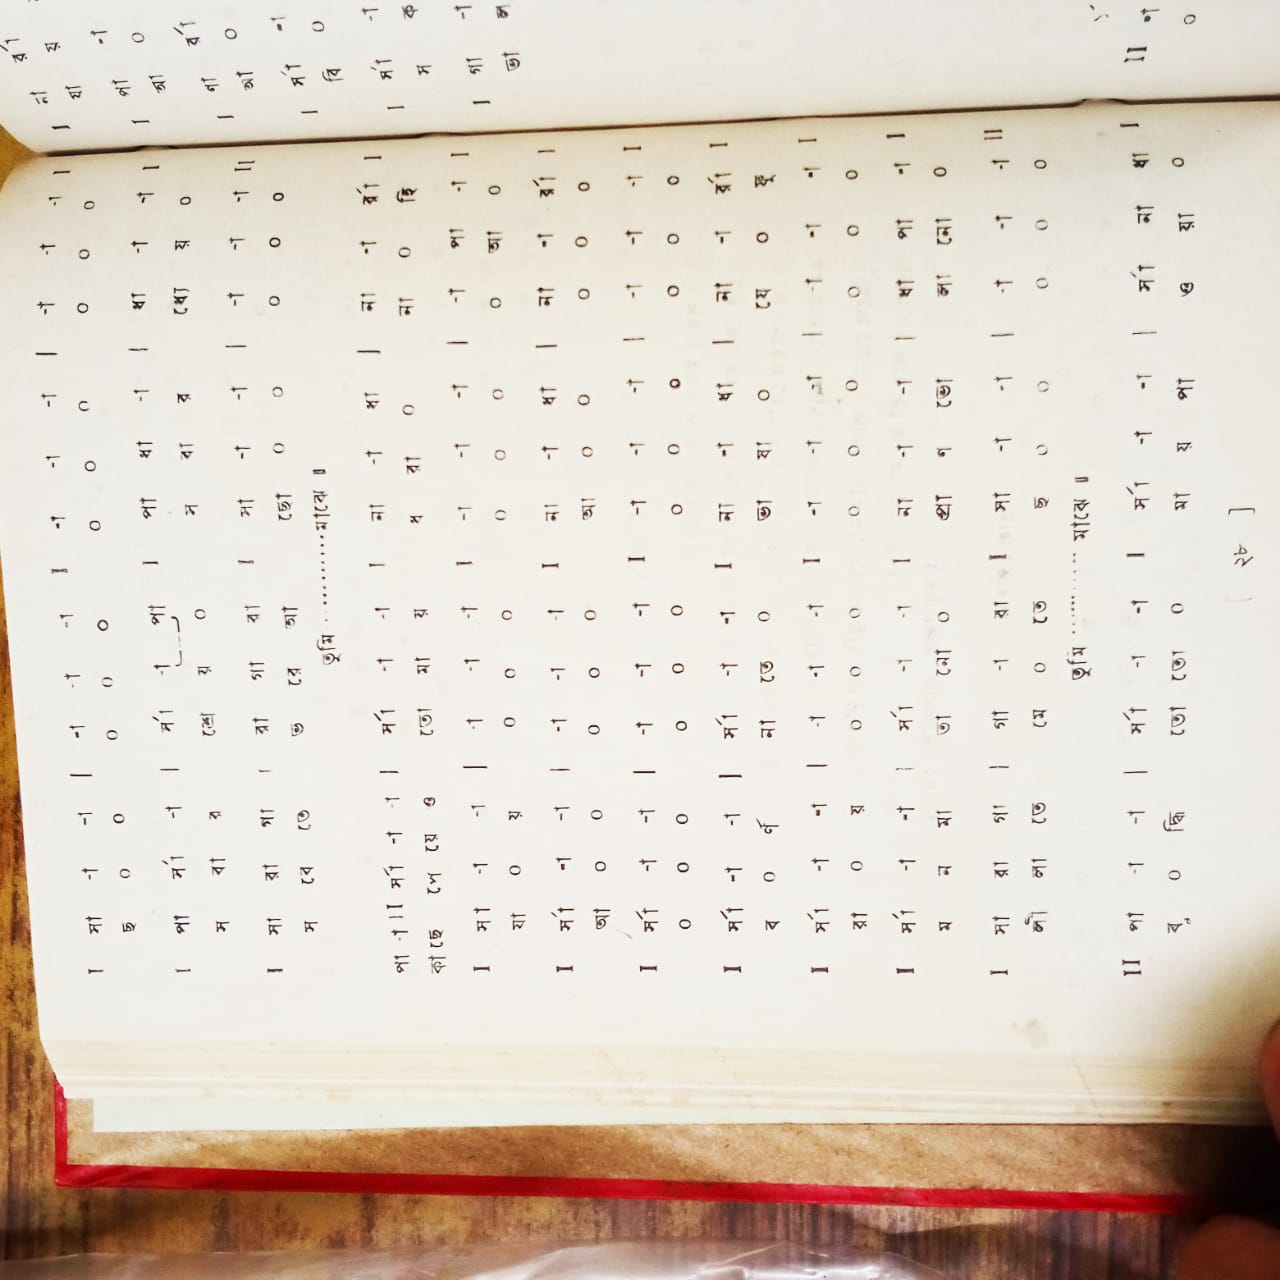 I সা -া -া | -া -া -া I -া -া -া | -া -া -া I
ছ ০ ০ ০ ০ ০ ০ ০ ০ ০ ০ ০
I পা র্সা -া | র্সা -া পা I পা ধা -া | ধা -া -া I
স বা র য় ০ স বা র ধ্যে য় ০
I সা রা গা | রা গা রা I সা -া -া | -া -া -া II
স বে তে ভ রে আ ছো ০ ০ ০ ০ ০
তুমি ........... মাঝে ॥
পা -া II র্সা -া -া | র্সা -া -া I না -া ধা | না -া র্রা I
কাছে পে য়ে ও তো মা য় ধ রা ০ না ০ হি
I সা -া -া | -া -া -া I -া -া -া | -া পা -া I
যা ০ য় ০ ০ ০ ০ ০ ০ ০ আ ০
I র্সা -া -া | -া -া -া I না -া ধা | না -া র্রা I
আ ০ ০ ০ ০ ০ আ ০ ০ ০ ০ ০
I র্সা -া -া | -া -া -া I -া -া -া | -া -া -া I
০ ০ ০ ০ ০ ০ ০ ০ ০ ০ ০ ০
I র্সা -া -া | র্সা -া -া I না -া ধা | না -া র্রা I
ব ০ র্ণ না তে ০ ভা ষা ০ যে ০ ফু
I র্সা -া -া | -া -া -া I -া -া -া | -া -া -া I
রা ০ য় ০ ০ ০ ০ ০ ০ ০ ০ ০
I র্সা -া -া | র্সা -া -া I না -া -া | ধা পা -া I
ম ন মা তা নো ০ প্রা ণ ভো লা নো ০
I সা রা গা | গা -া রা I সা -া -া | -া -া -া II
লী লা তে মে ০ তে ছ ০ ০ ০ ০ ০
তুমি ........... মাঝে ॥
II পা -া -া | র্সা -া -া I র্সা -া -া | র্সা না ধা I
বু ০ দ্ধি তো তো ০ মা য় পা ও য়া ০
[ ২৮ ]